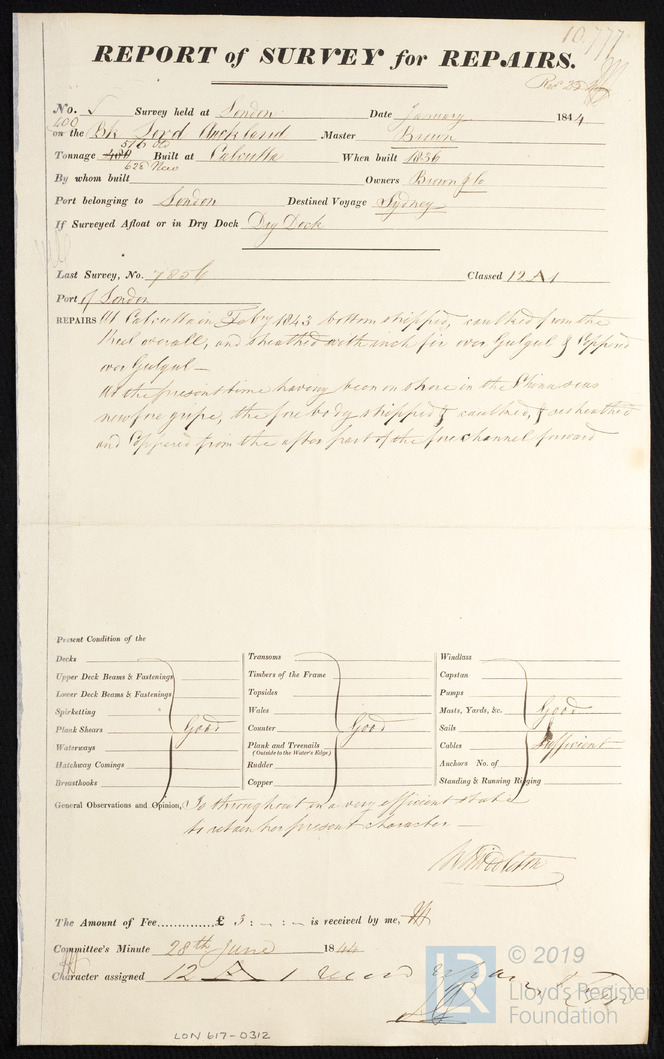 10,777
REPORT of SURVEY for REPAIRS.
No. 5 Survey held at London Date January 1844
400
on the Bk Lord Auckland Master Brown
516 Old
Tonnage Built at Calcutta When built 1836
628 New
By whom built Owners Brown & Co
Port belonging to London Destined Voyage Sydney
If Surveyed Afloat or in Dry Dock Dry Dock
Last Survey, No. 7856 Classed 12 A 1
Port of London
REPAIRS At Calcutta in Feby 1843 bottom stripped, caulked from the
Keel overall, and sheathed with inch fir over Gulgul & Coppered
over Gulgul —
At the present time having been on shore in the China seas
new fore gripe, the fore body stripped & caulked, & resheathed
and Coppered from the after part of the fore channel forward
Present Condition of the
Decks Transoms Windlass
Upper Deck Beams & Fastenings Timbers of the Frame Capstan
Lower Deck Beams & Fastenings Topsides Pumps
Spirketting Wales Masts, Yards, &c. Good
Plank Shears Good Counter Good Sails
Waterways Plank and Treenails Cables Sufficient
(Outside to the Water's Edge)
Hatchway Comings Rudder Anchors No. of
Breasthooks Copper Standing & Running Rigging
General Observations and Opinion, Is throughout in a very efficient state
to retain her present character —
The Amount of Fee..............£ 3 : — : — is received by me,
Committee's Minute 28th June 1844
Character assigned 12 A 1
LR © 2019
Lloyd's Register
Foundation
LON 617-0312